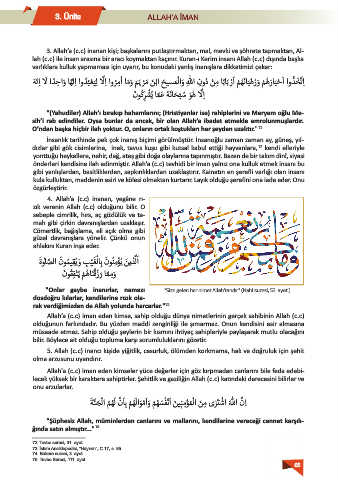 3. Ünite
ALLAH'A İMAN
3. Allah'a (c.c) inanan kişi; başkalarını putlaştırmaktan, mal, mevki ve şöhrete tapmaktan, Al-
lah (c.c) ile insan arasına bir aracı koymaktan kaçınır. Kuran-ı Kerim insanı Allah (c.c) dışında başka
varlıklara kulluk yapmaması için uyarır, bu konudaki yanlış inançlara dikkatimizi çeker:
اِتَّخَذُٓوا اَحْبَارَهُمْ وَرُهْبَانَهُمْ اَرْبَابًا مِنْ دُونِ اللّٰهِ وَالْمَس۪يحَ ابْنَ مَرْيَمَۚ وَمَٓا اُمِرُٓوا اِلَّا لِيَعْبُدُٓوا اِلٰهًا وَاحِدًاۚ لَٓا اِلٰهَ
اِلَّا هُوَۜ سُبْحَانَهُ عَمَّا يُشْرِكُونَ
"(Yahudiler) Allah'ı bırakıp hahamlarını; (Hristiyanlar ise) rahiplerini ve Meryem oğlu Me-
sih'i rab edindiler. Oysa bunlar da ancak, bir olan Allah'a ibadet etmekle emrolunmuşlardır.
O'ndan başka hiçbir ilah yoktur. O, onların ortak koştukları her şeyden uzaktır." 72
İnsanlık tarihinde pek çok inanış biçimi görülmüştür. İnsanoğlu zaman zaman ay, güneş, yıl-
dızlar gibi gök cisimlerine, inek, tavus kuşu gibi kutsal kabul ettiği hayvanlara, 73 kendi elleriyle
yonttuğu heykellere, nehir, dağ, ateş gibi doğa olaylarına tapınmıştır. Bazen de bir takım dini, siyasi
önderleri kendisine ilah edinmiştir. Allah'a (c.c) tevhidi bir iman yalnız ona kulluk etmek insanı bu
gibi yanlışlardan, basitliklerden, sapkınlıklardan uzaklaştırır. Kainatın en şerefli varlığı olan insanı
kula kulluktan, maddenin esiri ve kölesi olmaktan kurtarır. Layık olduğu şerefini ona iade eder. Onu
özgürleştirir.
4. Allah'a (c.c) inanan, yegâne rı-
zık verenin Allah (c.c) olduğunu bilir. O
sebeple cimrilik, hırs, aç gözlülük ve ta-
mah gibi çirkin davranışlardan uzaklaşır.
Cömertlik, bağışlama, eli açık olma gibi
güzel davranışlara yönelir. Çünkü onun
ahlakını Kuran inşa eder.
اَلَّذ۪ينَ يُؤْمِنُونَ بِالْغَيْبِ وَيُق۪يمُونَ الصَّلٰوةَ
وَمِمَّا رَزَقْنَاهُمْ يُنْفِقُونَ
"Onlar gaybe inanırlar, namazı
dosdoğru kılarlar, kendilerine rızık ola-
rak verdiğimizden de Allah yolunda harcarlar." 74
"Size gelen her nimet Allah'tandır." (Nahl suresi, 53. ayet)
Allah'a (c.c) iman eden kimse, sahip olduğu dünya nimetlerinin gerçek sahibinin Allah (c.c)
olduğunun farkındadır. Bu yüzden maddi zenginliği ile şımarmaz. Onun kendisini esir almasına
müsaade etmez. Sahip olduğu şeylerin bir kısmını ihtiyaç sahipleriyle paylaşarak mutlu olacağını
bilir. Böylece ait olduğu topluma karşı sorumluluklarını gözetir.
5. Allah (c.c) inancı kişide yiğitlik, cesurluk, ölümden korkmama, hak ve doğruluk için şehit
olma arzusunu uyandırır.
Allah'a (c.c) iman eden kimseler yüce değerler için göz kırpmadan canlarını bile feda edebi-
lecek yüksek bir karaktere sahiptirler. Şehitlik ve gaziliğin Allah (c.c) katındaki derecesini bilirler ve
onu arzularlar.
اِنَّ اللّٰهَ اشْتَرٰى مِنَ الْمُؤْمِن۪ينَ اَنْفُسَهُمْ وَاَمْوَالَهُمْ بِاَنَّ لَهُمُ الْجَنَّةَ
"Şüphesiz Allah, müminlerden canlarını ve mallarını, kendilerine vereceği cennet karşılı-
ğında satın almıştır..." 75
72 Tevbe suresi, 31. ayet.
74 Bakara suresi, 3. ayet.
75 Tevbe Suresi, 111. ayet.